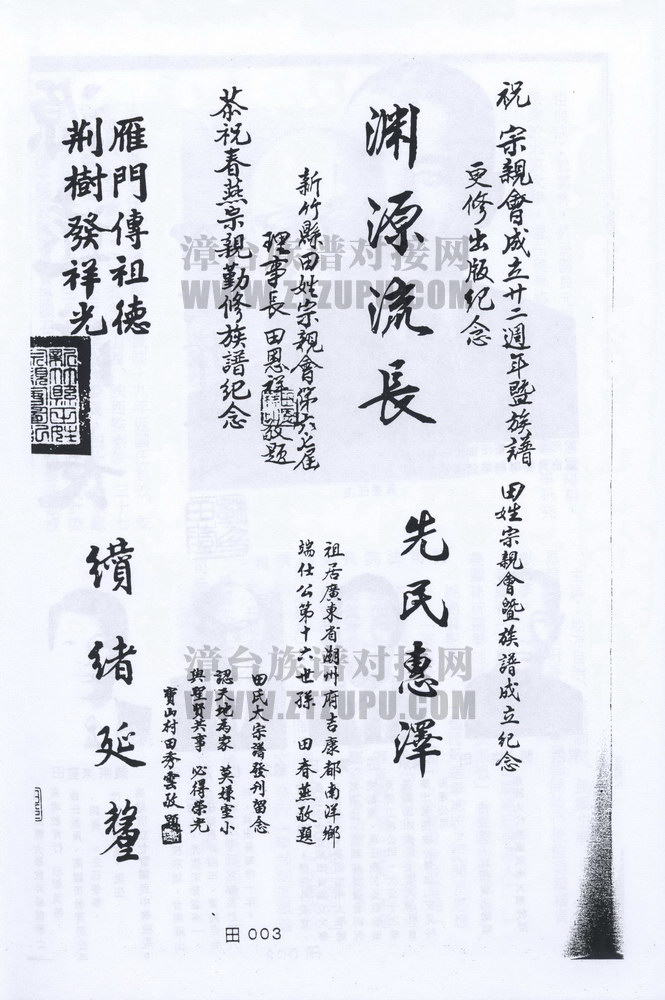 祝 宗親會成立廿二週年暨族譜
更修出版紀念
淵源流長
新竹縣田姓宗親會第六七屆
理事長 田恩祥 敬題
恭祝春燕宗親勤修族譜紀念
雁門傳祖德
荊樹發祥光
田姓宗親會暨族譜成立紀念
先民惠澤
祖居廣東省潮州府吉康都南洋鄉
端仕公第十六世孫 田春燕敬題
田氏大宗譜發刊留念
認天地為家 莫嫌室小
與聖賢共事 必得榮光
寶山村田秀雲敬題
續緒延釐
田 003
漳台族谱对接网
WWW.ZTZUPU.COM
漳台族谱对接网
WWW.ZTZUPU.COM